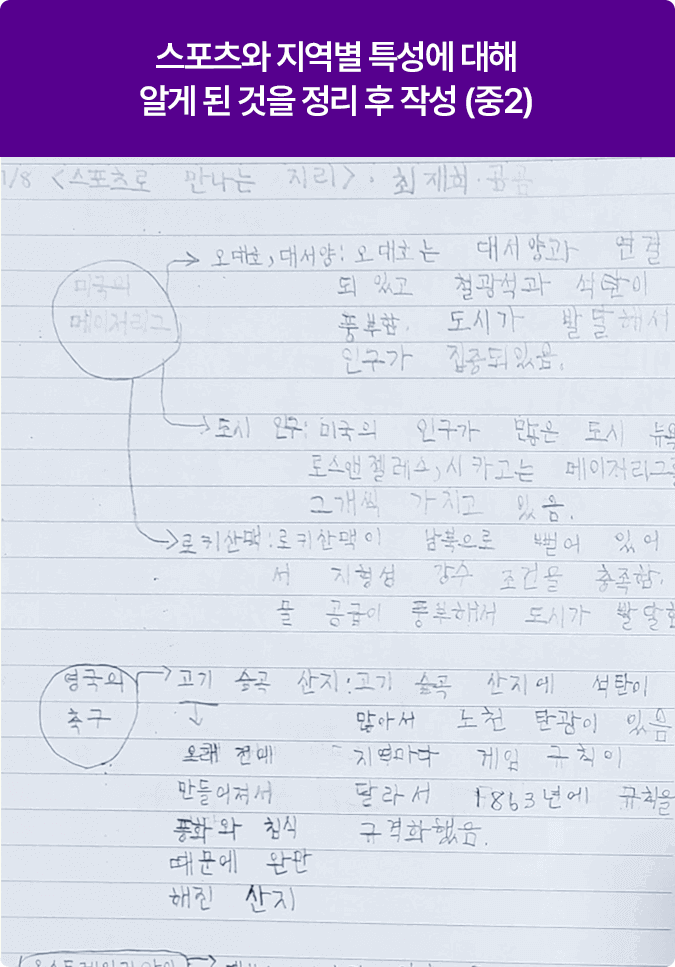 스포츠와 지역별 특성에 대해
알게 된 것을 정리 후 작성 (중2)
1/8 <스포츠로 만나는 지리>. 최재희.
미국의
메이저리그
오대호, 대서양: 오대호는 대서양과 연결
되 있고 철광석과 석탄이
풍부함. 도시가 발달해서
인구가 집중되있음.
도시 인구: 미국의 인구가 많은 도시 뉴욕
로스앤젤레스, 시카고는 메이저리그를
그개씩 가지고 있음.
로키산맥: 로키산맥이 남북으로 뻗어 있어
서 지형성 강수 조건을 충족함.
물 공급이 풍부해서 도시가 발달
영국의
축구
고기 습곡 산지: 고기 습곡 산지에 석탄이
많아서 노천 탄광이 있음
지역마다 게임 규칙이
달라서 1863년에 규칙을
규격화했음.
↓
오래 전에
만들어져서
풍화와 침식
때문에 완만
해진 산지